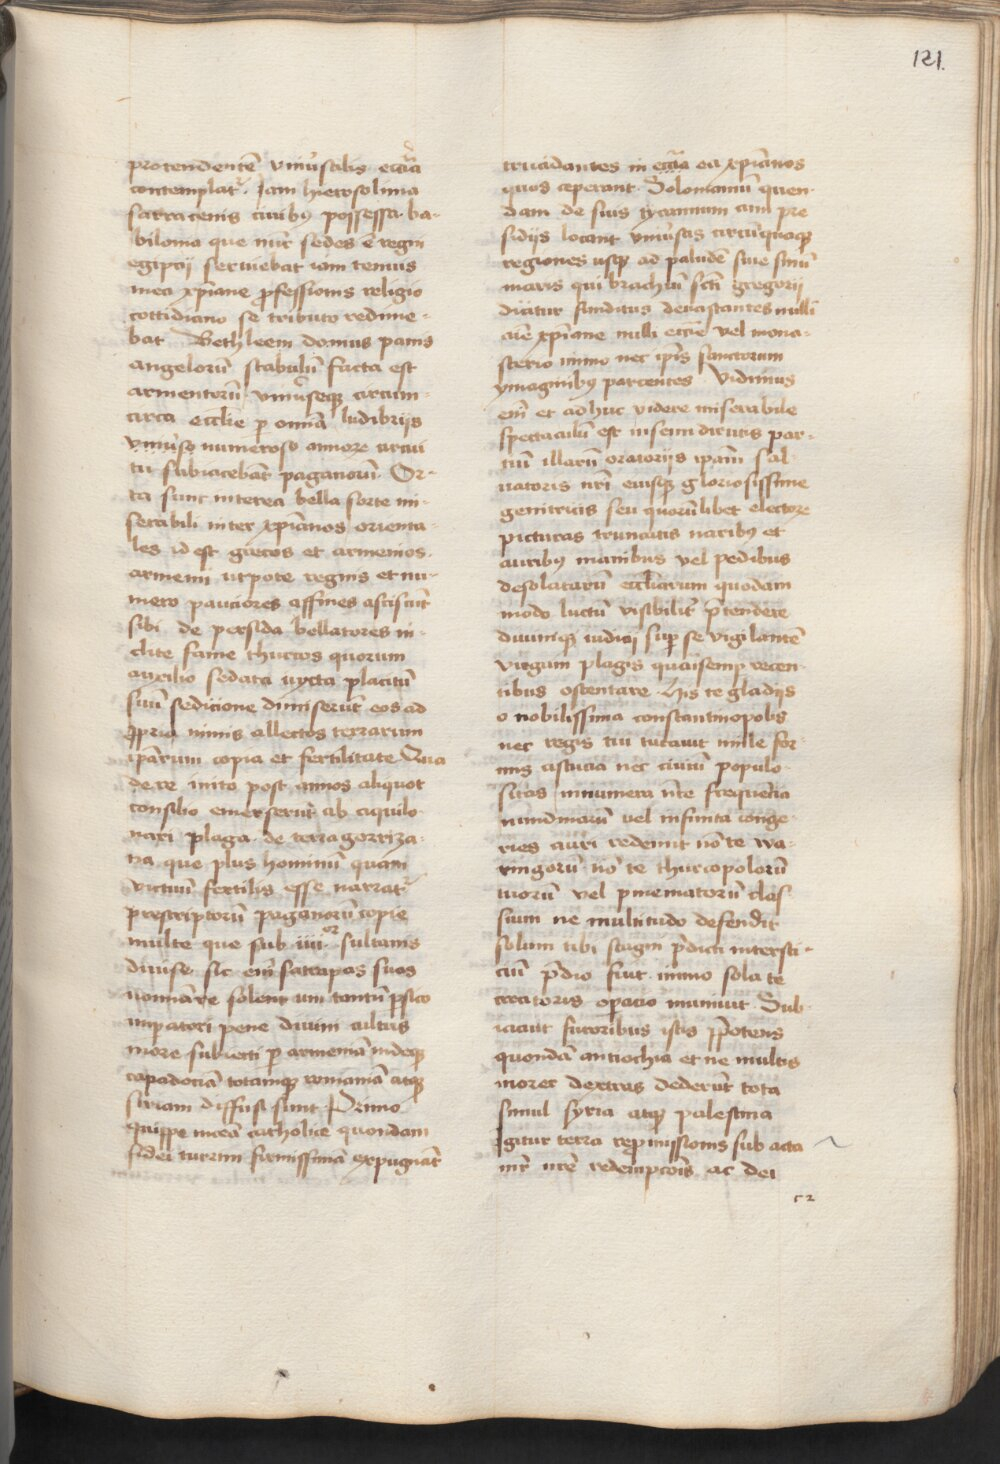 121.
protendentē vniūsalis ecc̄ia
contemplat᷑. Jam hierosolima
sarracenis ciuibꝰ possessa ba-
bilonia que nūc sedes ē regni
egipcij seruiebat iam tenus
mea xp̄iane ꝓfessionis religio
cottidiano se tributo redime-
bat Bethleem domus panis
angelorū stabulū facta est
armentorū vniūseqꝫ circum-
circa ecclie ꝑ omnia ludibrijs
vniūso numeroso
tu subiacebāt paganorū. Or-
ta sunt interea bella sorte mi-
serabili inter xp̄ianos orienta-
les id est grecos et armenios.
armenij utpote regnis et nu-
mero pauciores affines asciscūt
sibi de persida bellatores in-
clite fame thurcos quorum
auxilio sedata iuxta placitū
suū sedicione dimiserūt eos ad
ꝓpria nimis allectos terrarum
ip̄arum copia et fertilitate Qua
de re inito post annos aliquot
consilio emerserūt ab aquilo-
nari plaga de terra gorriza-
na que plus hominū quam
victuū fertilis esse narrat᷑
prescriptorū paganorū copie
multe que sub iiii.or sultanis
diuise sic em̄ satrapas suos
nominare solent uni tantū ꝑsico
impatori pene diuini cultus
more subiecti ꝑ armeniā indeqꝫ
capadociā totamqꝫ romaniā atqꝫ
siriam diffusi sunt Primo
quippe niceā catholice quondam
fidei turrim firmissimā expugnāt
trucidantes in ecc̄ia ea xp̄ianos
quos ceperant. Solomanū quen-
dam de suis tyrannum cum pre
sidijs locant vniūsas circūquaqꝫ
regiones usqꝫ ad paludē siue sinū
maris qui brachiū sct̄i gregorij
dicitur funditus deuastantes nulli
aīe xp̄iane nulli ecc̄ie vel mona-
sterio immo nec ip̄is sanctorum
ymaginibꝰ parcentes Vidimus
em̄ et adhuc videre miserabile
spectaculū est in semidirutis par-
tiū illarū oratorijs ipam̄ sal-
uatoris nr̄i eiusqꝫ gloriosissime
genitricis seu quorūlibet electorꝫ
picturas truncatis naribꝰ et
auribꝰ manibus vel pedibus
desolatarū ecc̄liarum quodam
modo luctū visibilit᷑ p̄tendere
diuiniqꝫ iudicij sup̄ se vigilantē
virgam plagis quasi semp recen-
tibus ostentare. His te gladijs
o nobilissima constantinopolis
nec regis tui tucauit mille for-
mis astucia nec ciuiū populo-
sitas innumera nr̄e frequēcia
nundinarū vel infinita conge-
ries auri redemit nō te wa-
ringorū nō te thurcopolorū
tuorū vel pinematorū clas-
sium ne multitudo defendit
solum tibi stagni p̄dicti intersti-
ciū p̄sidio fuit immo sola te
creatoris opacio muniuit. Sub-
iacuit furoribus istis p̄potens
quondā antiochia et ne multis
morer dextras dederūt tota
simul syria atqꝫ palestina
Igitur terra repromissionis sub acta
mr̄ nr̄e redempcōis ac dei
c 2